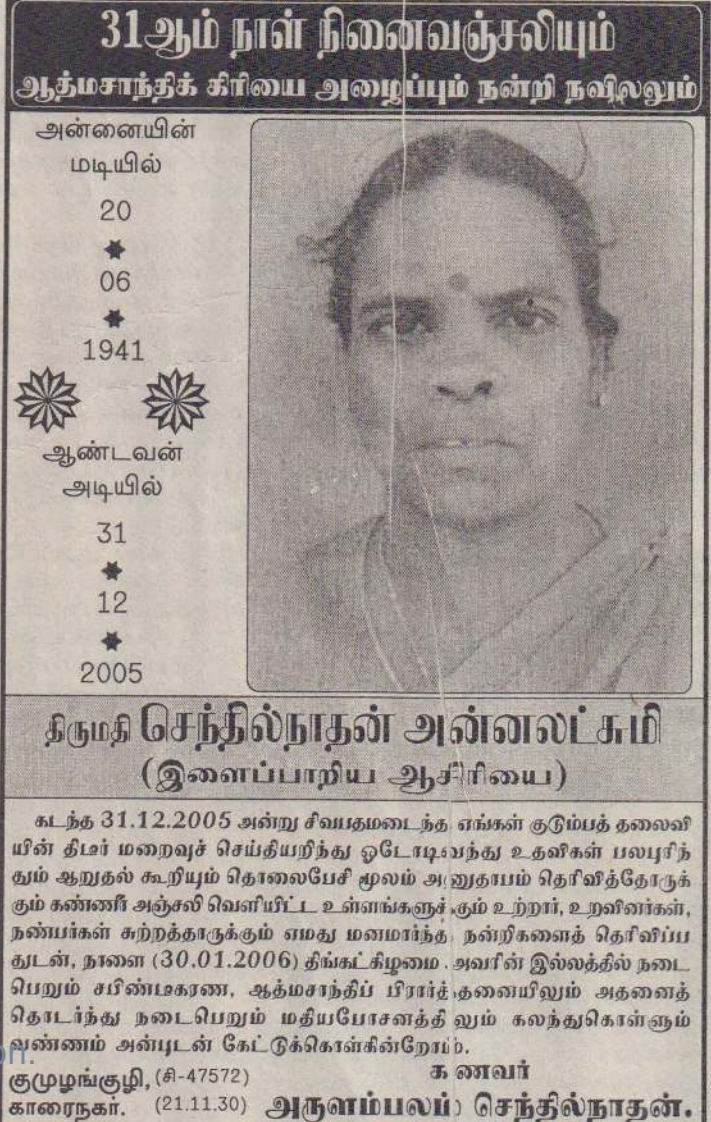 31ஆம் நாள் நினைவஞ்சலியும்
ஆத்மசாந்திக் கிரியை அழைப்பும் நன்றி நவிலலும்
அன்னையின்
மடியில்
20
06
1941
ஆண்டவன்
அடியில்
31
12
2005
திருமதி செந்தில்நாதன் அன்னலட்சுமி
(இளைப்பாறிய ஆசிரியை)
கடந்த 31.12.2005 அன்று சிவபதமடைந்த எங்கள் குடும்பத் தலைவி
யின் திடீர் மறைவுச் செய்தியறிந்து ஓடோடிவந்து உதவிகள் பலபுரிந்
தும் ஆறுதல் கூறியும் தொலைபேசி மூலம் அனுதாபம் தெரிவித்தோருக்
கும் கண்ணீர் அஞ்சலி வெளியிட்ட உள்ளங்களுக்கும் உற்றார், உறவினர்கள்,
நண்பர்கள் சுற்றத்தாருக்கும் எமது மனமார்ந்த நன்றிகளைத் தெரிவிப்ப
துடன், நாளை (30.01.2006) திங்கட்கிழமை அவரின் இல்லத்தில் நடை
பெறும் சபிண்டீகரண, ஆத்மசாந்திப் பிரார்த்தனையிலும் அதனைத்
தொடர்ந்து நடைபெறும் மதியபோசனத்திலும் கலந்துகொள்ளும்
வண்ணம் அன்புடன் கேட்டுக்கொள்கின்றோம்.
குமுழங்குழி, (சி-47572) கணவர்
காரைநகர். (21.11.30) அருளம்பலம் செந்தில்நாதன்.